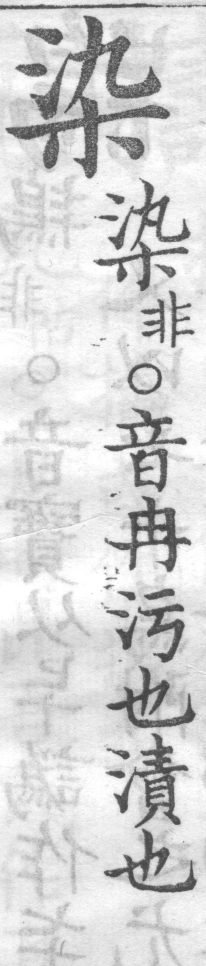 染
染非○音冉污也漬也